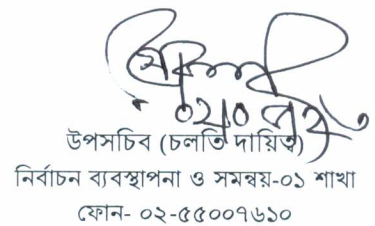 উপসচিব (চলতি দায়িত্ব)
নির্বাচন ব্যবস্থাপনা ও সমন্বয়-০১ শাখা
ফোন- ০২-৫৫০০৭৬১০